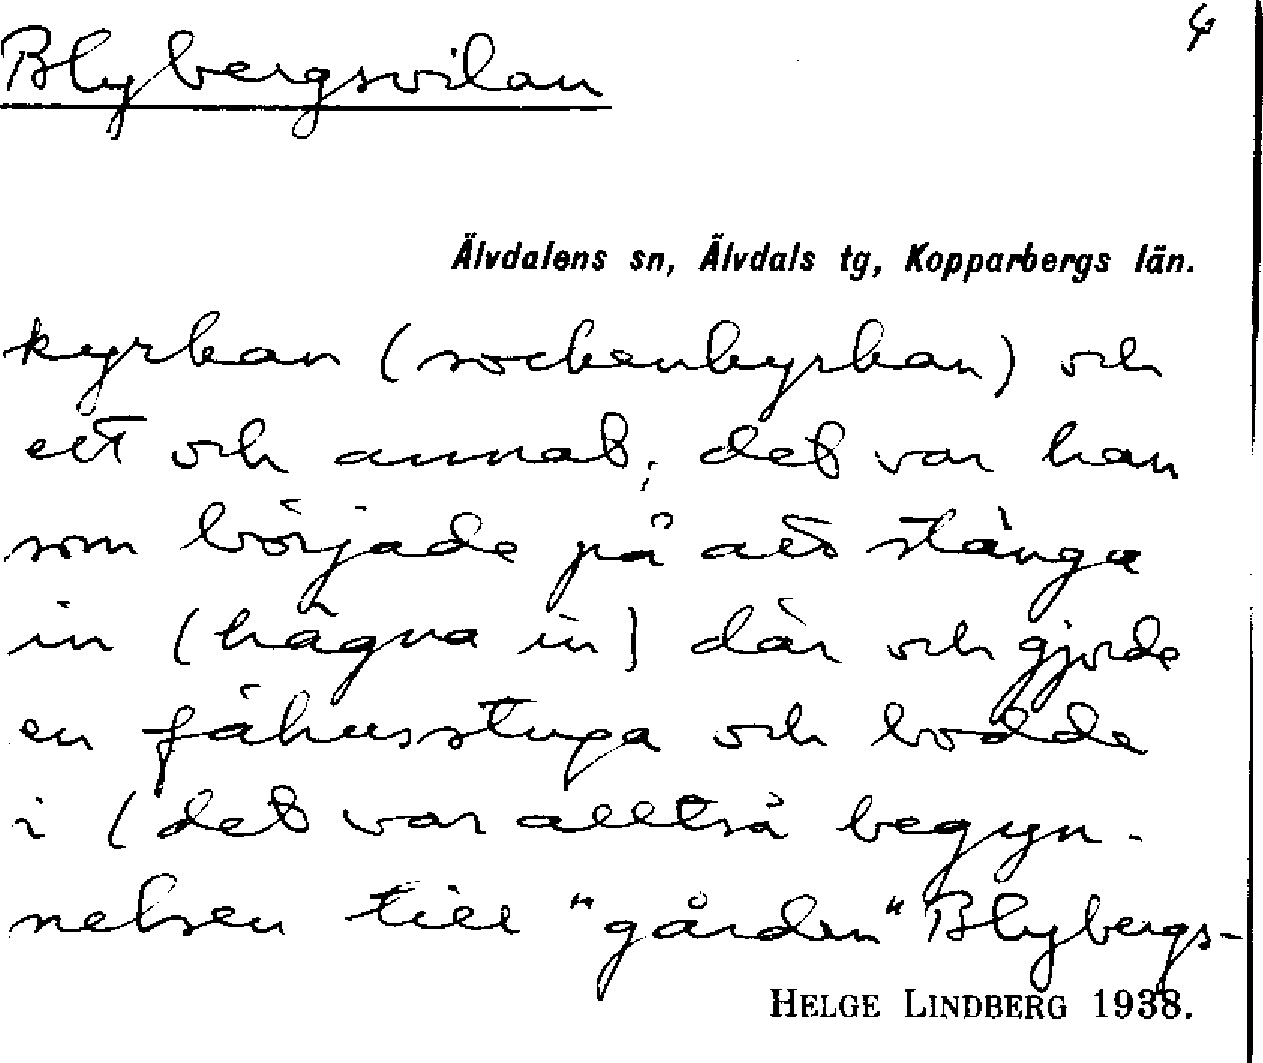 4
Blybergsvilan
Älvdalens sn, Älvdals tg, Kopparbergs län.
kyrkan (sockenkyrkan) och
ett och annat; det var han
som började på att stänga
in (hägna in) där och gjorde
en fähusstuga och bodde
i (det var alltså begyn-
nelsen till "gården" Blybergs-
HELGE LINDBERG 1938.